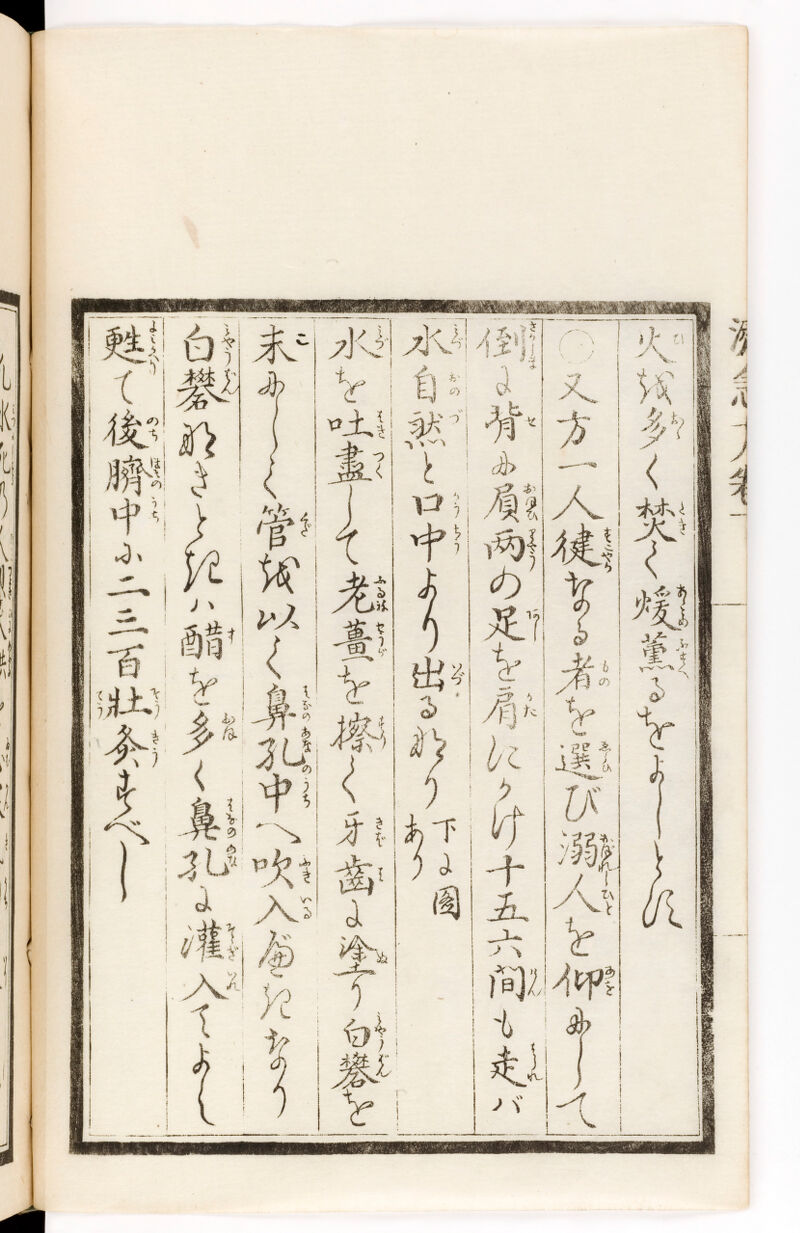 火を多く焚て煖薫るをよしとす
〇又方一人健なる者を選び溺人を仰にして
倒に背に屓両の足を肩にかけ十五六間も走バ
水自然と口中より出るなり下に圖あり
水を吐盡して老薑を擦て牙齒に塗り白礬を
末にして管を以て鼻孔中へ吹入べきなり
白礬なきときハ醋を多く鼻孔に灌入てよし
甦て後臍中に二三百壮灸すべし